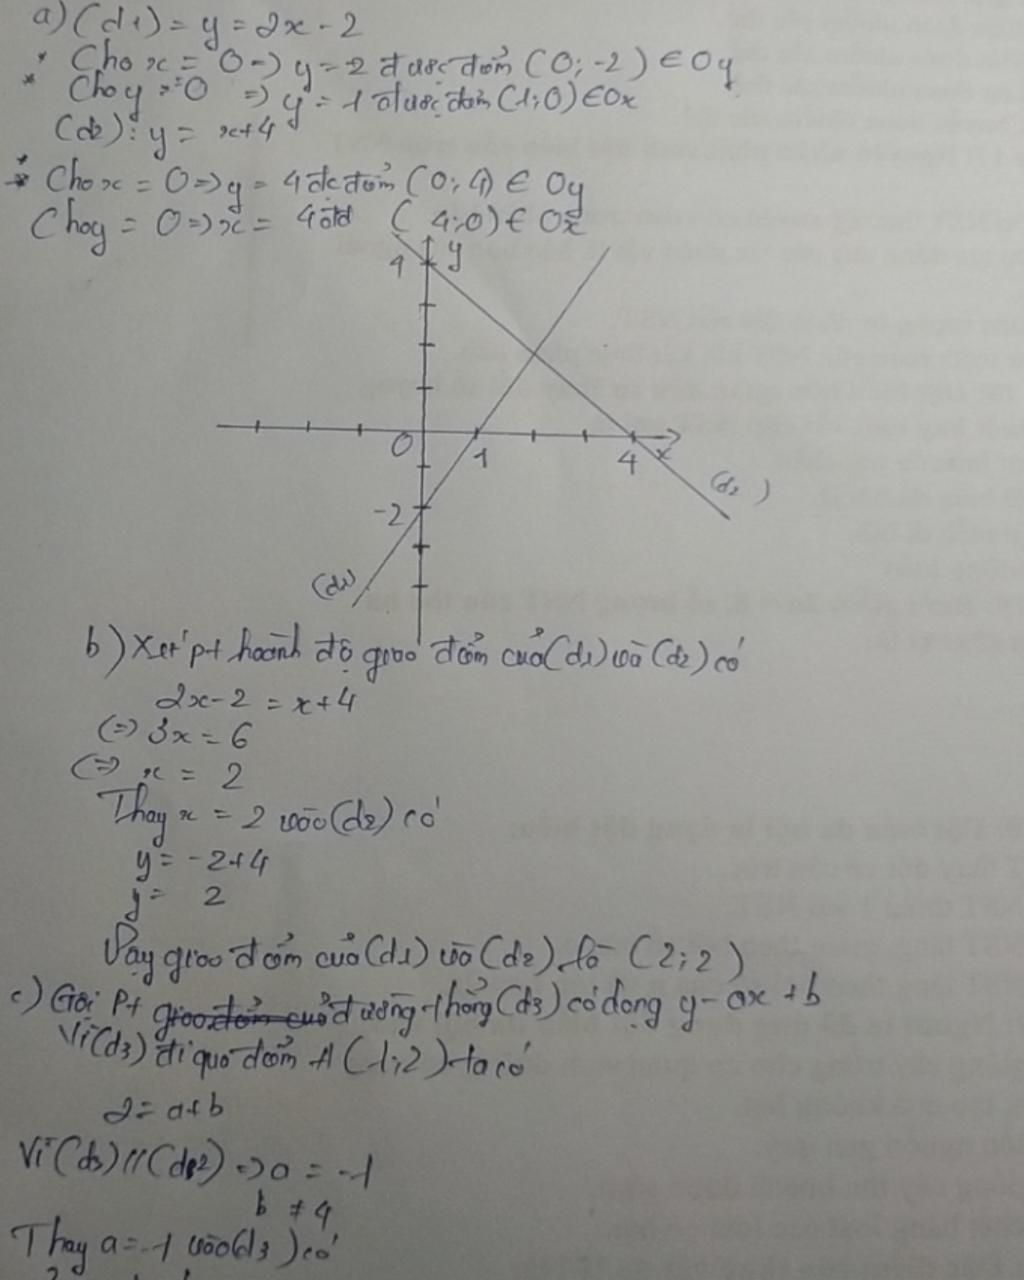 a) (d1) = y = 2x - 2
* Cho x = 0 => y = 2 được điểm (0; -2) ∈ Oy
* Cho y = 0 => y = 1 được điểm (1; 0) ∈ Ox
(d2): y = x+4
* Cho x = 0 => y = 4 đc điểm (0; 4) ∈ Oy
Cho y = 0 => x = 4 (4; 0) ∈ Ox
y
4
0 1 4 x
(d2)
-2
(d1)
b) Xét pt hoành độ giao điểm của (d1) và (d2) có
2x - 2 = x + 4
(=) 3x = 6
(=) x = 2
Thay x = 2 vào (d2) có
y = -2+4
y = 2
Vậy giao điểm của (d1) và (d2) là (2; 2)
c) Gọi Pt giao điểm của đường thẳng (d3) có dạng y - ax + b
Vì (d3) đi qua điểm A (1; 2) ta có
2 = a+b
Vì (d3) // (d2) => a = -1
b ≠ 4
Thay a = -1 vào (d3) có